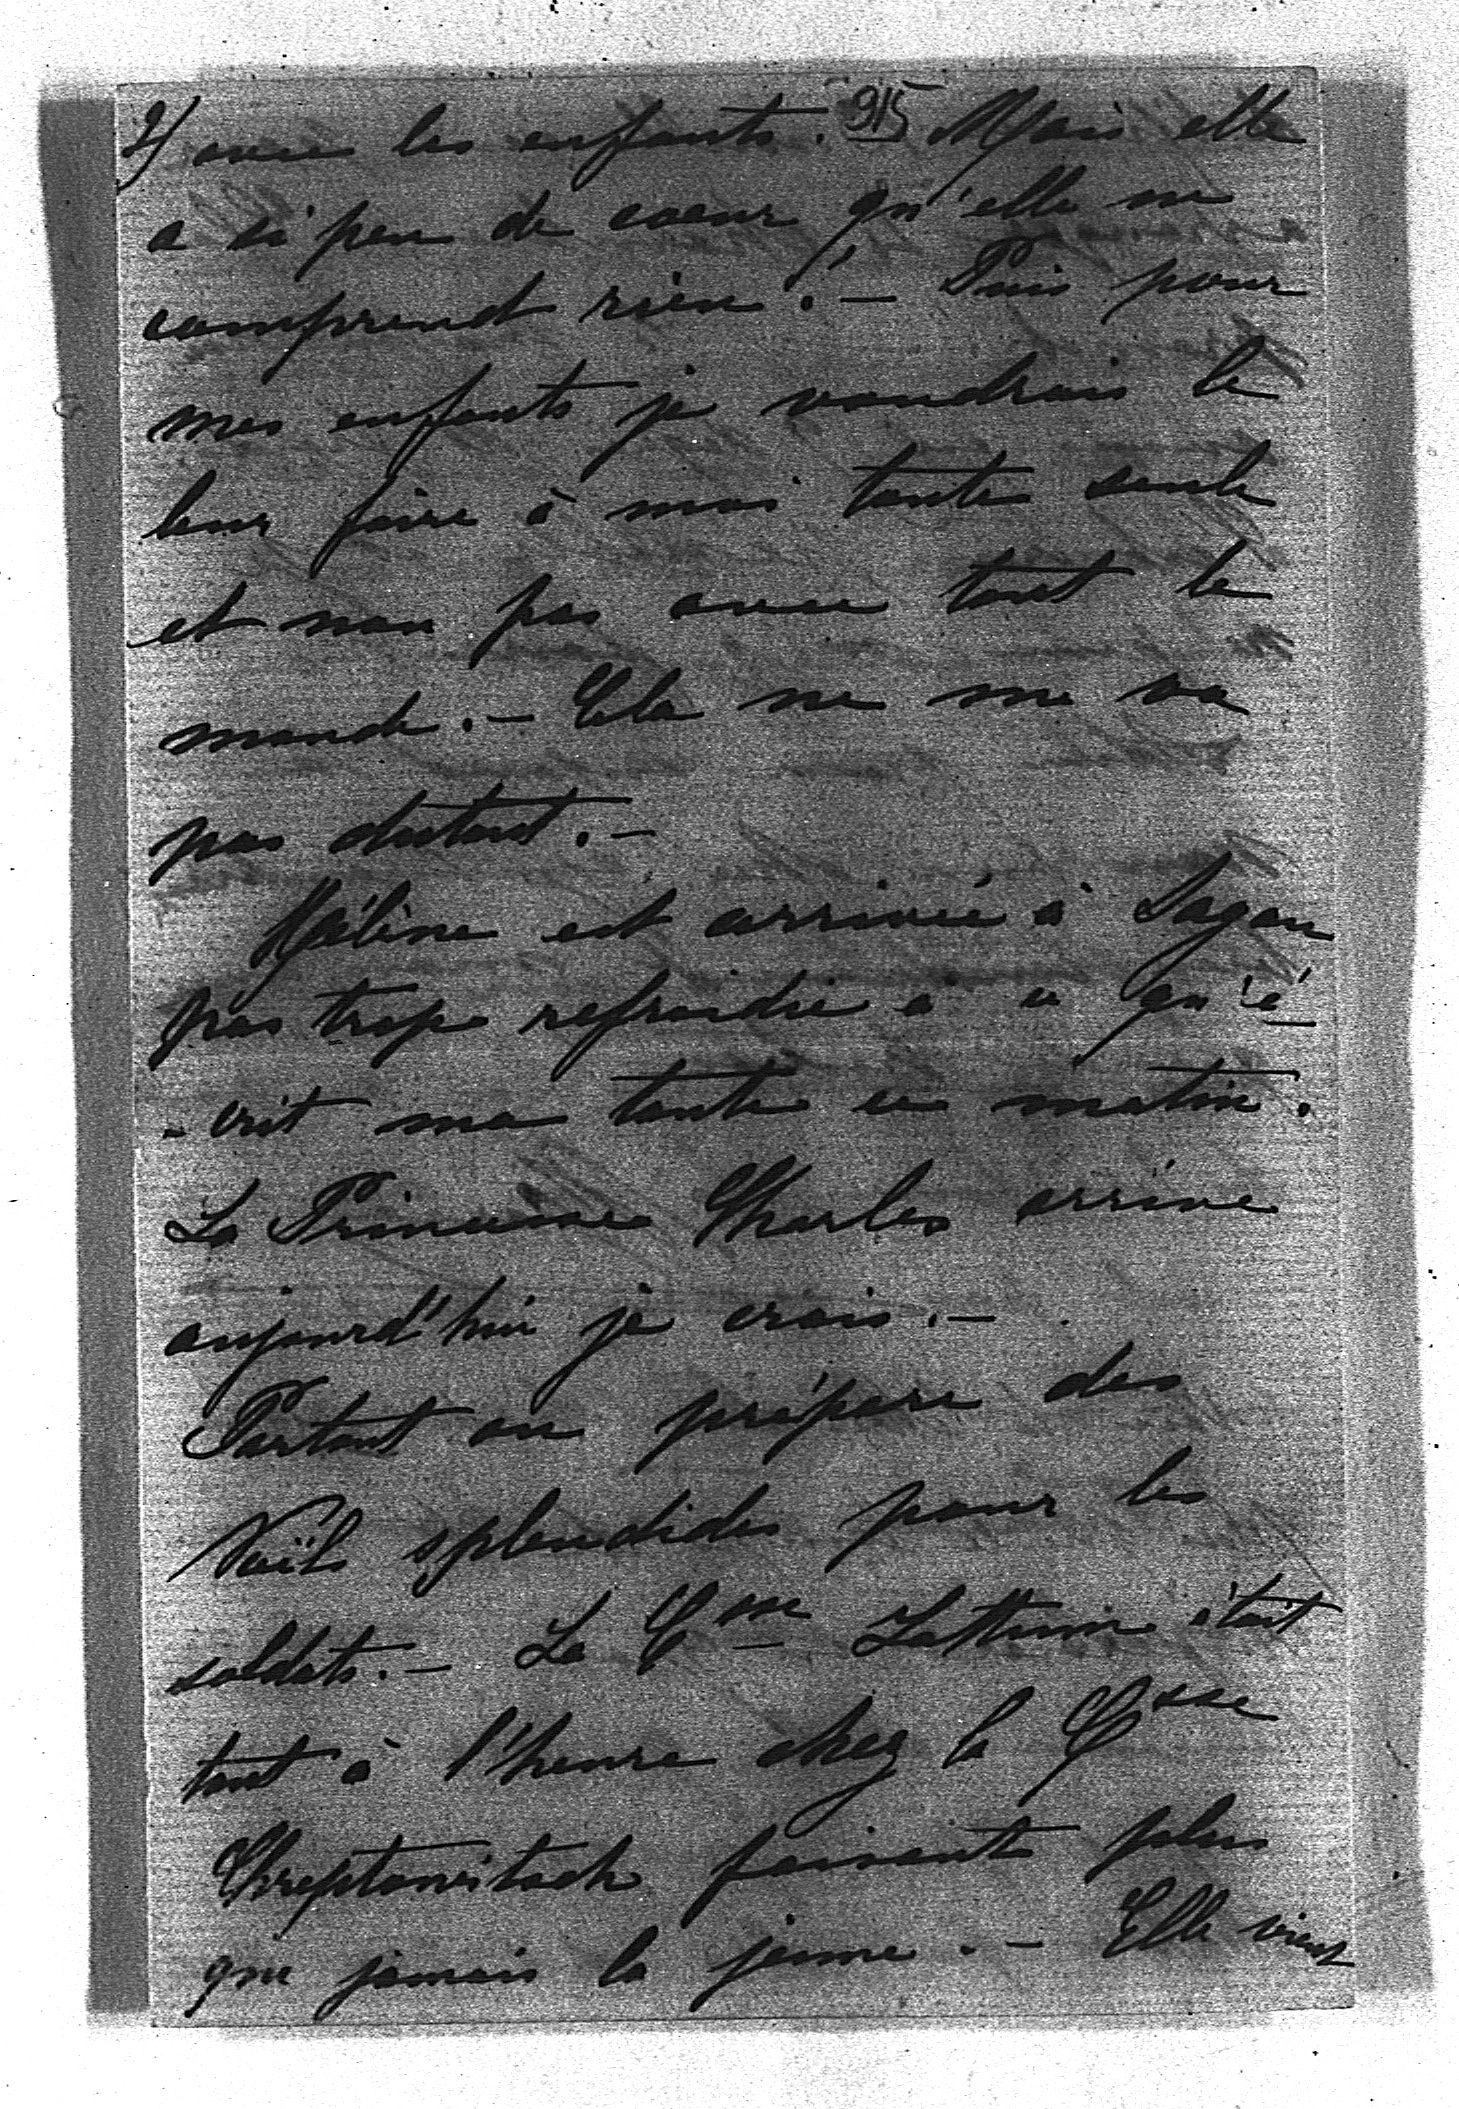 2/ avec les enfants. 915 Mais elle
a si peu de coeur qu'elle ne
comprend rien! — Puis pour
mes enfants je voudrais le
leur faire à moi toute seule
et non pas avec tout le
monde. — Cela ne me va
pas dutout. —
Hélène est arrivée à Sagan
pas trop refroidie à ce qu'é
- crit ma tante ce matin.
La Princesse Charles arrive
aujourd'hui je crois. —
Partout on prépare des
Noëls splendides pour les
soldats. — La était
tout à l'heure chez la Csse
Chreptowitsch faisante plus
que jamais la jeune. — Elle vient